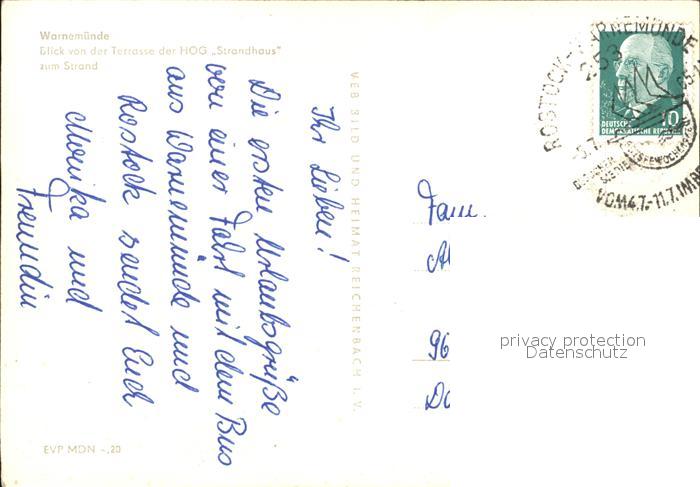 Warnemünde
Blick von der Terrasse der HOG „Strandhaus"
zum Strand
Ihr Lieben!
Die ersten Urlaubsgrüße
von einer Fahrt mit dem Bus
aus Warnemünde und
Rostock sendet Euch
Monika und
Freundin
EVP MDN -,20
VEB BILD UND HEIMAT REICHENBACH I. V.
ROSTOCK-WARNEMÜNDE
253
10
DEUTSCHE
DEMOKRATISCHE REPUBLIK
VOM 4.7.-11.7.
Fam.
96
privacy protection
Datenschutz